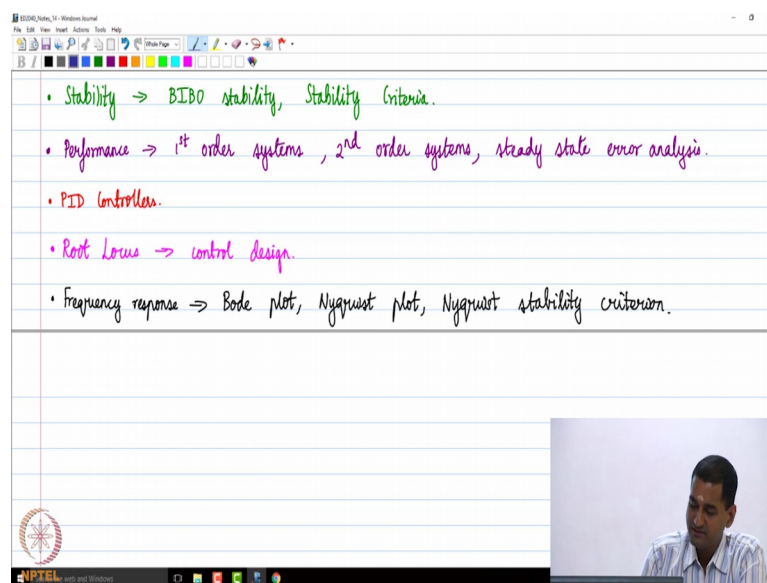 ED2040_Notes_14 - Windows Journal
File Edit View Insert Actions Tools Help
Whole Page
B I
• Stability → BIBO stability, Stability Criteria.
• Performance → 1st order systems, 2nd order systems, steady state error analysis.
• PID Controllers.
• Root Locus → control design.
• Frequency response → Bode plot, Nyquist plot, Nyquist stability criterion.
NPTEL
web and Windows